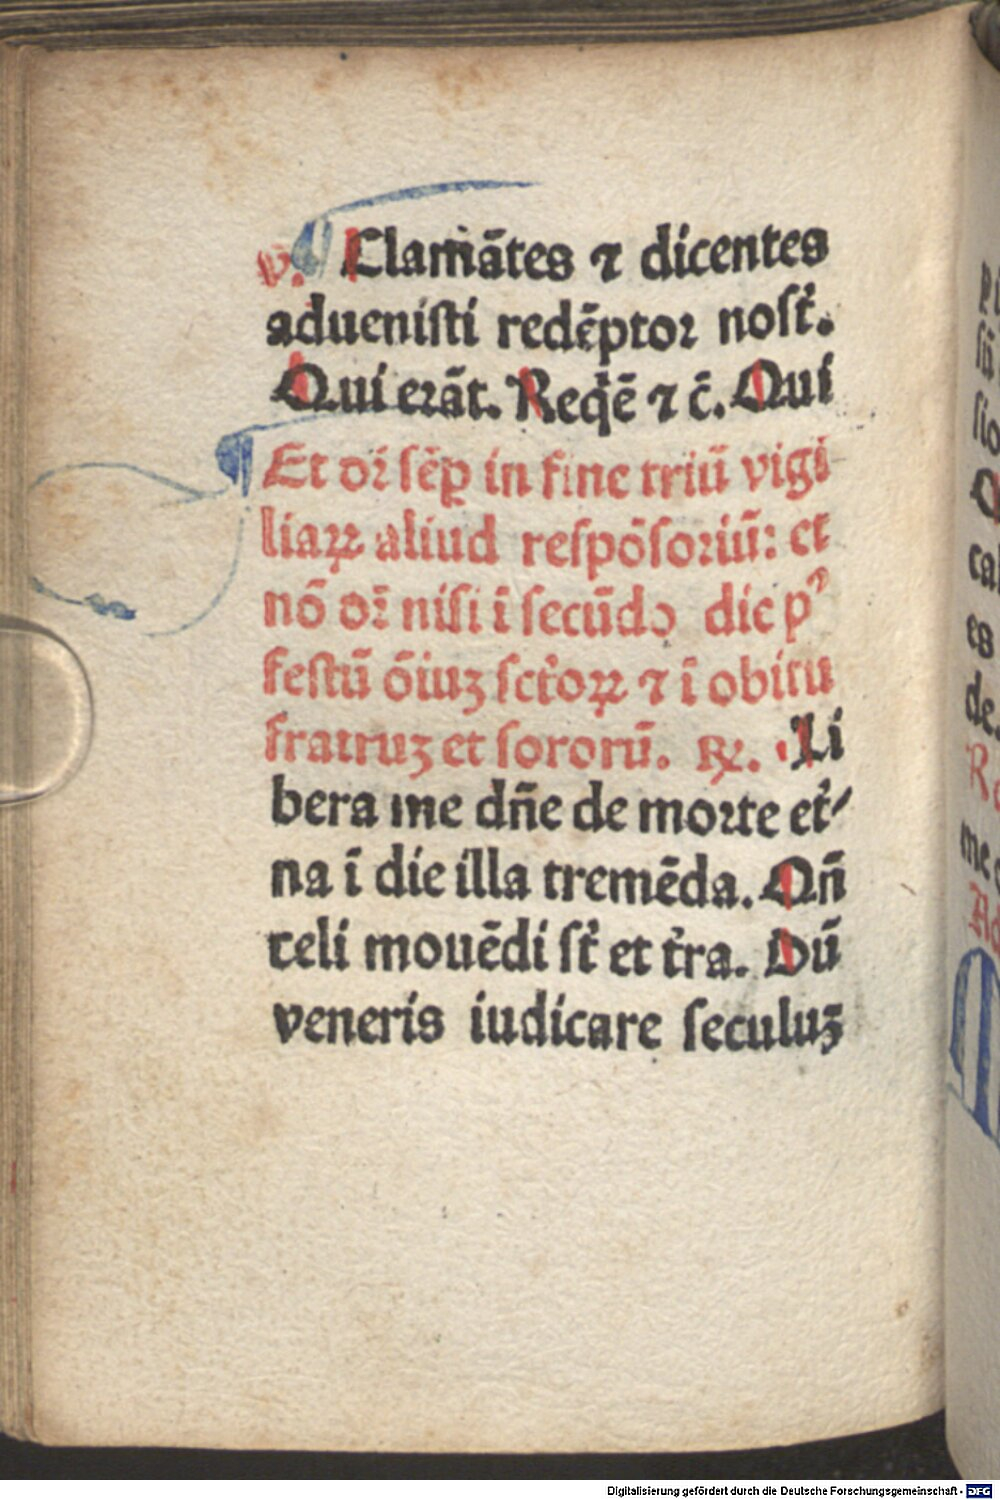 v. Clamãtes ⁊ dicentes
aduenisti redẽptor nosť.
Qui erãt. Reqẽ ⁊ c̃. Qui
Et dr̃ sẽp in fine triũ vigi
liaꝝ aliud respõsoriũ: et
nõ dr̃ nisi ĩ secũdo die pꝰ
festũ õiuʒ scťoꝝ ⁊ ĩ obitu
fratruʒ et sororũ. ℟. Li
bera me dñe de morte eť⸗
na ĩ die illa tremẽda. Qñ
celi mouẽdi sť et ťra. Dũ
veneris iudicare seculuʒ
Digitalisierung gefördert durch die Deutsche Forschungsgemeinschaft - DFG